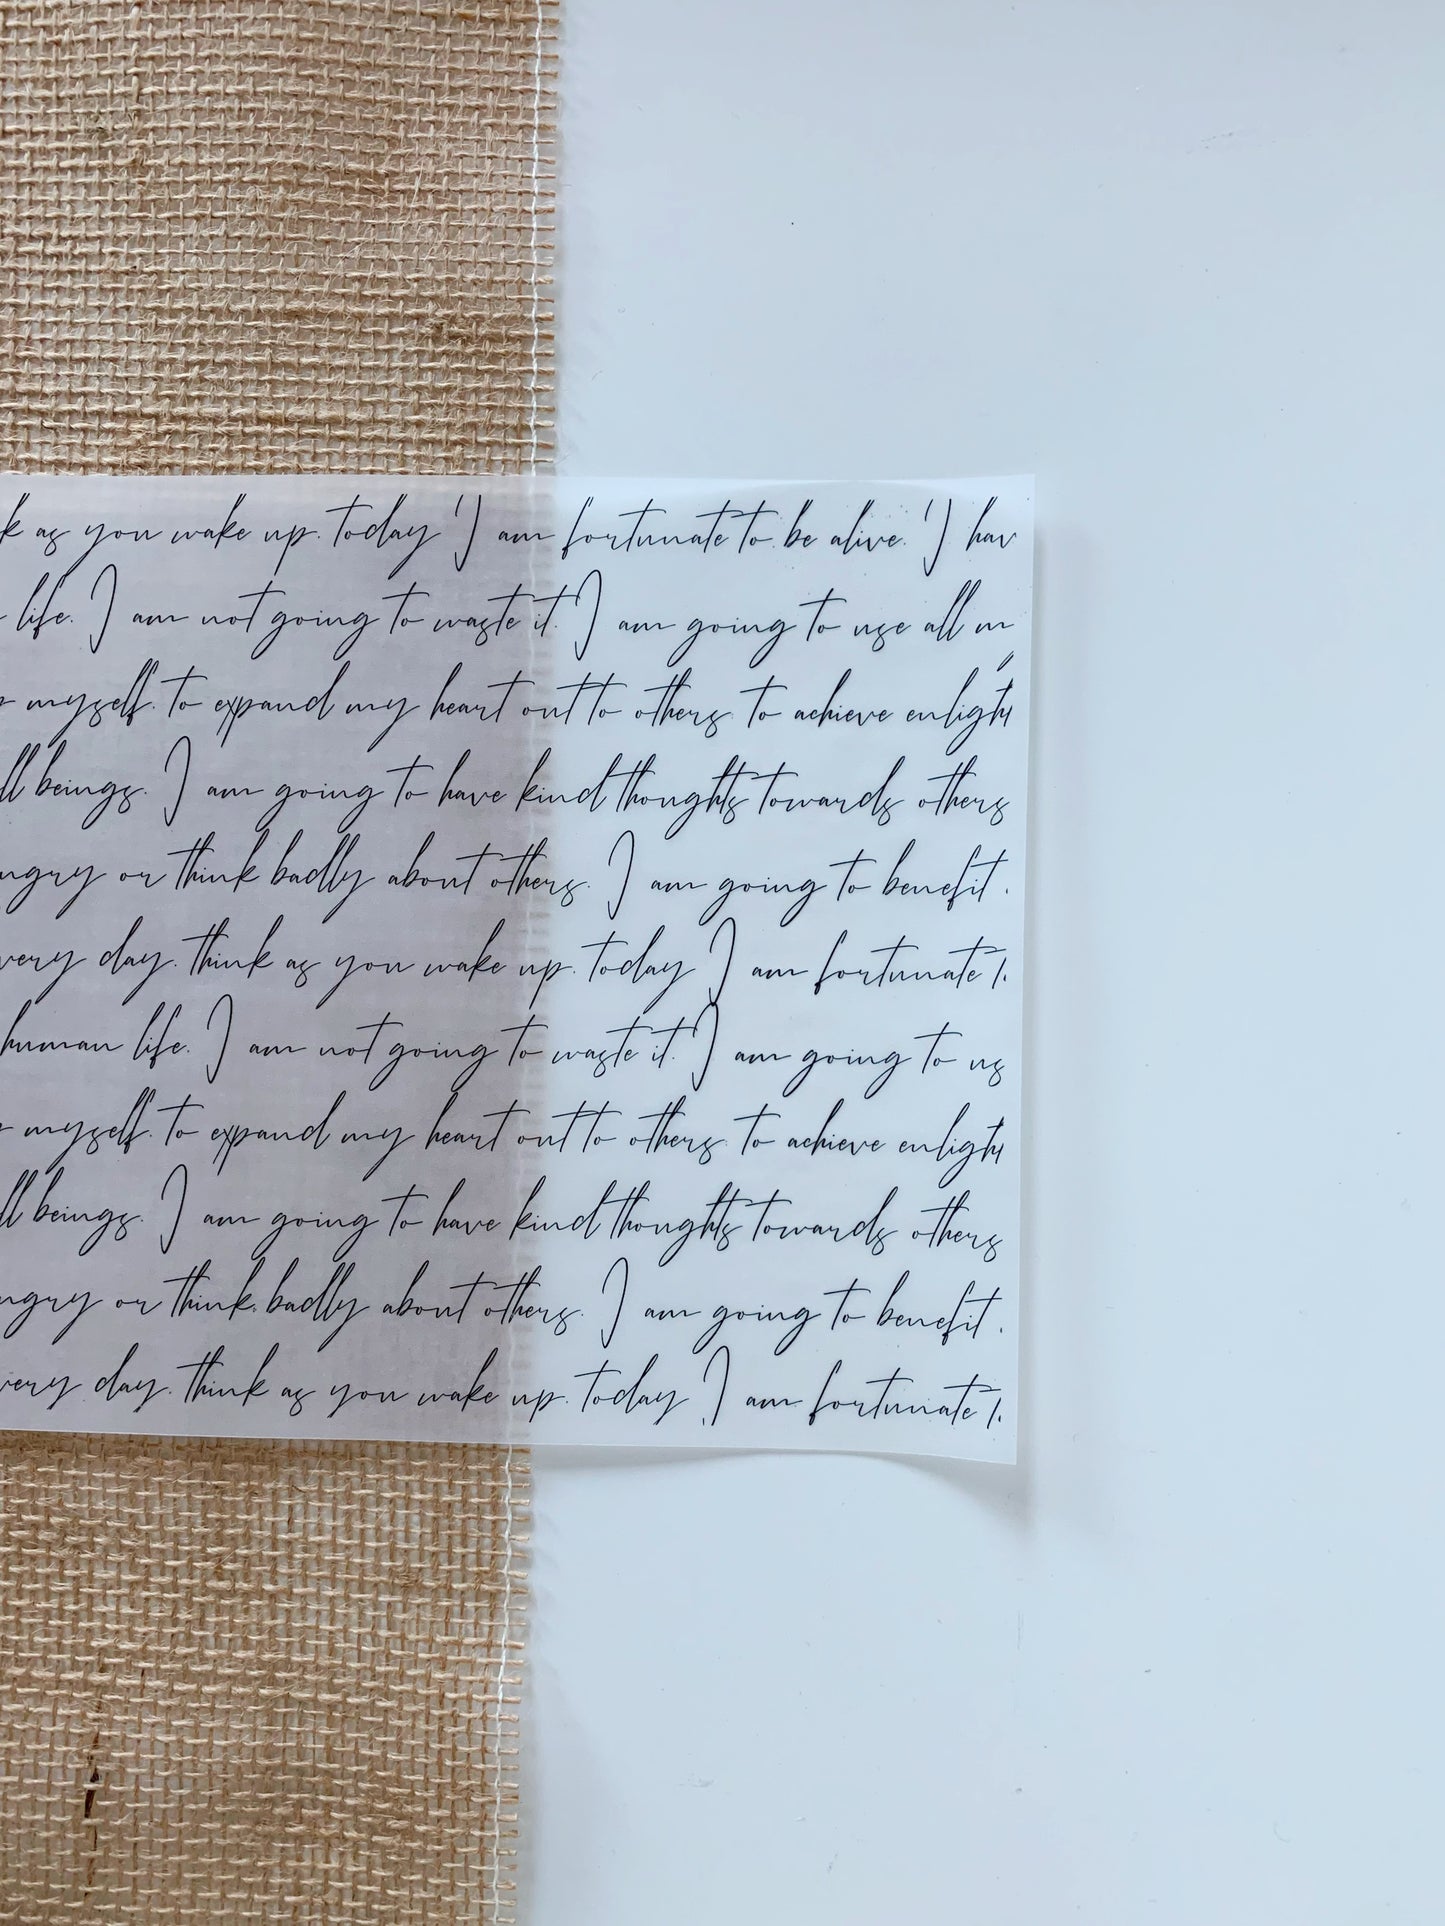 k as you wake up. today I am fortunate to be alive. I hav
life. I am not going to waste it. I am going to use all m
myself. to expand my heart out to others. to achieve enligh
ll beings. I am going to have kind thoughts towards others
ngry or think badly about others. I am going to benefit
very day. think as you wake up. today I am fortunate t
human life. I am not going to waste it. I am going to us
myself. to expand my heart out to others. to achieve enligh
ll beings. I am going to have kind thoughts towards others
ngry or think badly about others. I am going to benefit
very day. think as you wake up. today I am fortunate t